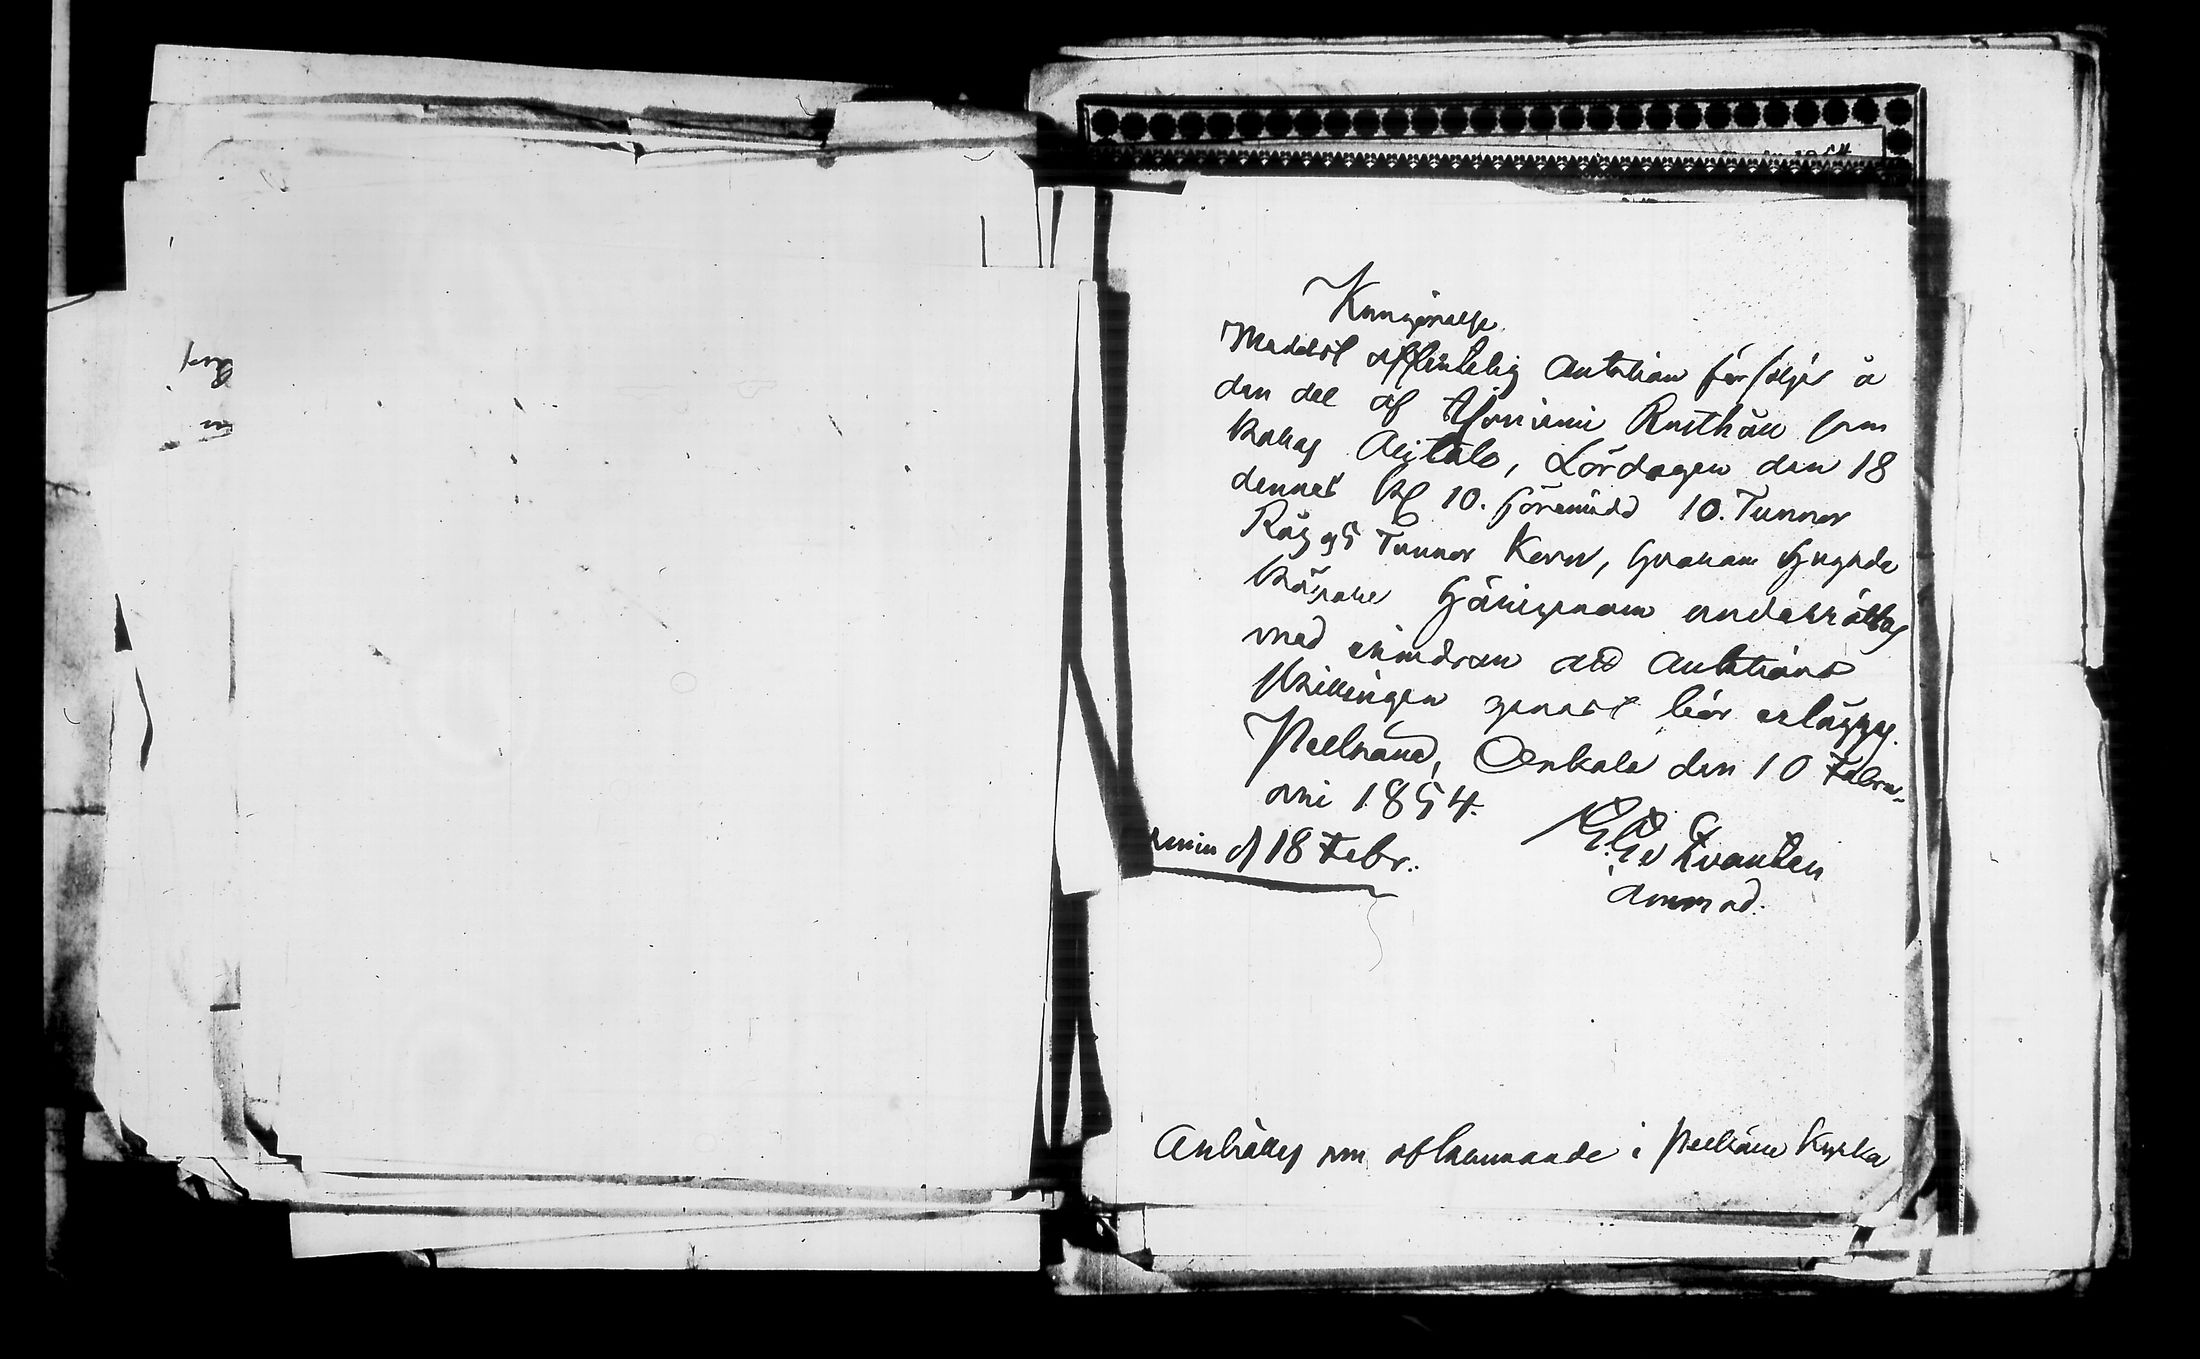 Kungörelse.
Medelst offentelig Auktion försäljes å
den del af Ajoniemi Rusthåll som
kallas Alitalo, Lördagen den 18
dennes Kl 10. förmidd 10. Tunnor
Råg o 5 Tunnor Korn, hvarom hugade
köpare härigenom underrättas
med erindran att Auktions
skillingen genast bör erläggas.
Pelkäne, Onkala den 10 Februa-
rii 1854.
d 18 Febr.
Länsmad.
Anhålles om aflämnande i Pelkäne Kyrka